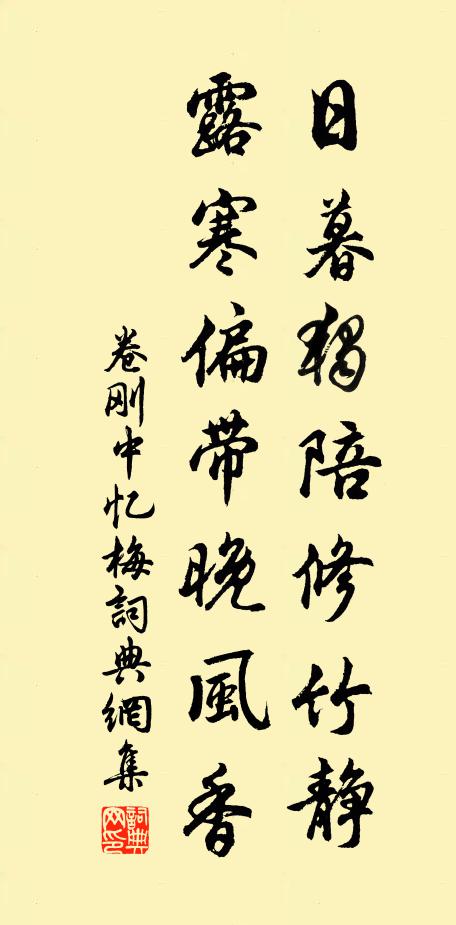 日暮獨陪修竹静
露寒偏带晚風香
卷刚中忆梅詞典網集
詞典网印